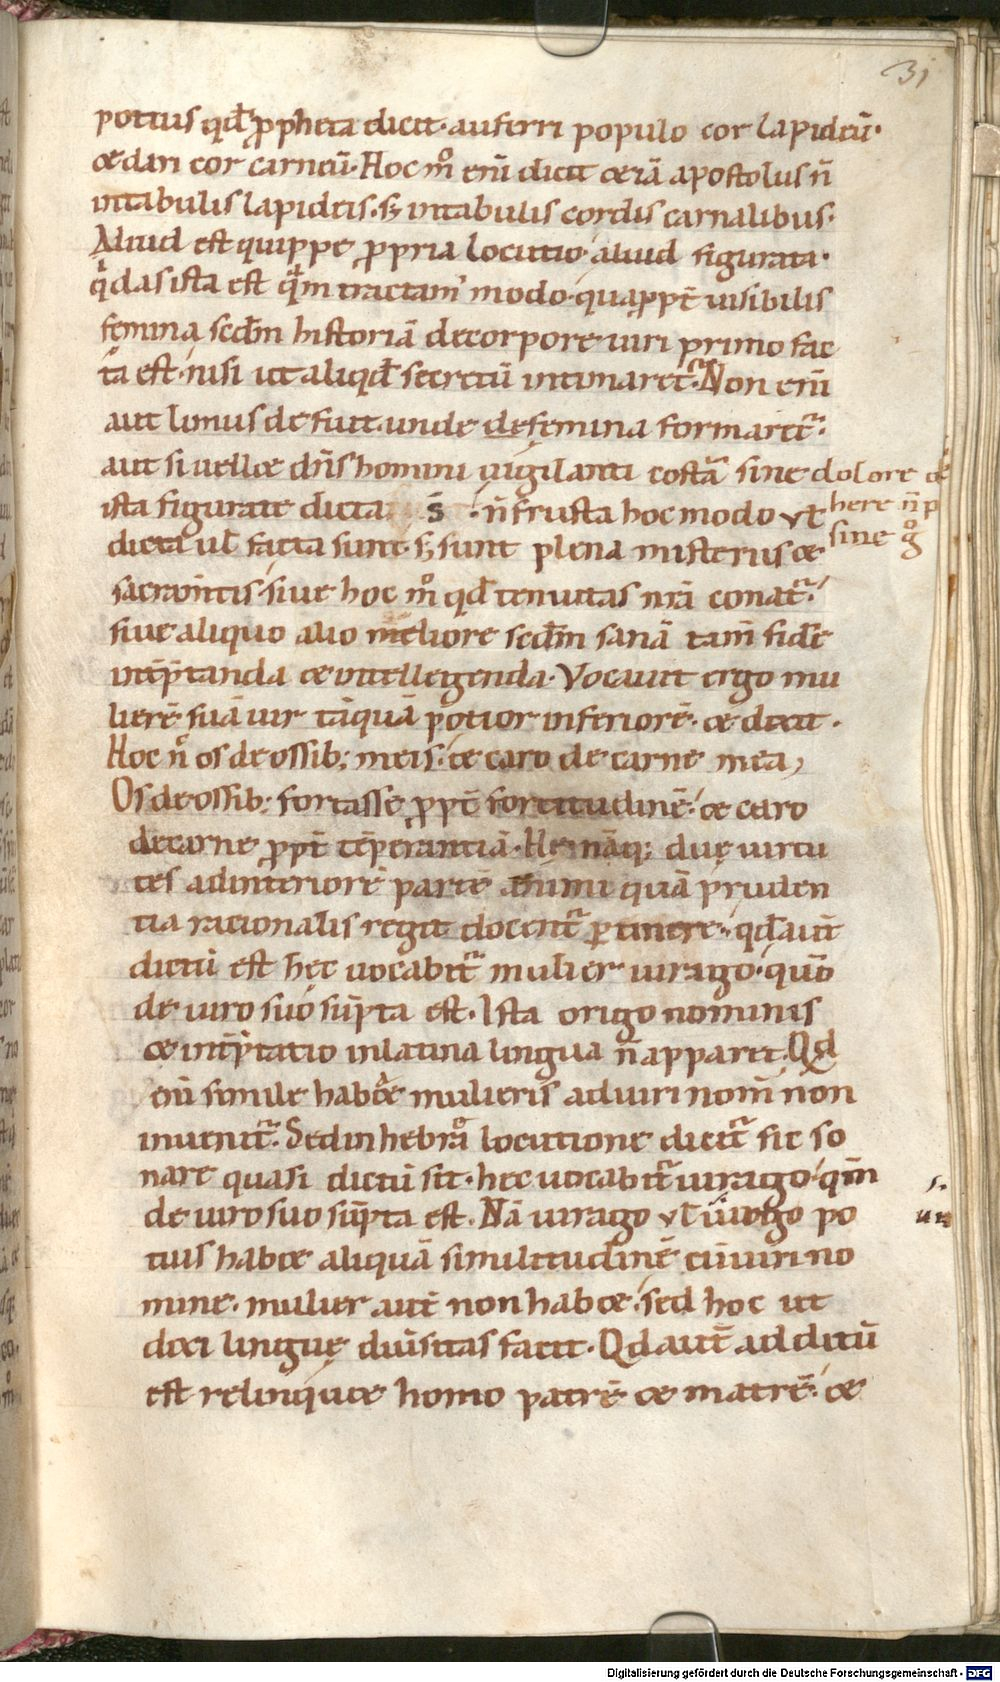 31
potius qđ ꝓpheta dicit· auferri populo cor lapideū·
& dari cor carneū· Hoc m̊ eni͂ dicit & iā apostolus ñ
intabulis lapideis· s; intabulis cordis carnalibus·
Aliud est quippe ꝓpria locutio· aliud figurata·
q̇da sista est q̄m tractam̅ modo· quaꝓpt̅ uisibilis
femina sedm̅ historiā decorpore uiri primo fac
ta est· nisi ut aliqđ secretū intimaret᷑· Non eni͂
aut limus defuit· unde femina formaret᷑·
aut si uell& dn̅s homini uigilanti costā sine dolore
ista figurate dicta s̅ · ñ frustra hoc modo ut
dicta ul̅ facta sunt· s; sunt plena misteriis &
sacram̅tis· siue hoc m̊ qđ tenuitas nr̅a conat᷑·
siue aliquo alio meliore sedm̅ sanā tam̅ fidē
int̅p̅tanda & intellegenda· Vocauit ergo mu
lierē suā uir tāquā potior inferiorē· & dixit·
Hoc ñ os de ossib; meis· & caro de carne mea,
Os de ossib; fortasse ꝓpt̅ fortitudinē· & caro
decarne ꝓpt̅ tēperantiā· Hę nāq; duę uirtu
tes adinteriorē partē animi quā pruden
tia racionalis regit docent᷑ ꝑtinere· qđ aut̅
dictū est hęc uocabit᷑ mulier uirago· qūo
de uiro suo sūpta est· Ista origo nominis
& int̅p̅tatio inlatina lingua ñ apparet· Qđ
eni͂ simile hab& mulieris aduiri nom̅ non
inuenit᷑· Sed in hebrā locutione dicit᷑ sic so
nare quasi dictū sit· hęc uocabit᷑ uirago· qm̅
de uiro suo sūpta est· Nā uirago ul̅ uirgo po
tius hab& aliquā similitudinē cū uiri no
mine· mulier aut̅ non hab&· sed hoc ut
dixi linguę diu̅sitas facit· Qđ aut̅ additū
est relinqu& homo patrē & matrē· &
Digitalisierung gefördert durch die Deutsche Forschungsgemeinschaft · DFG